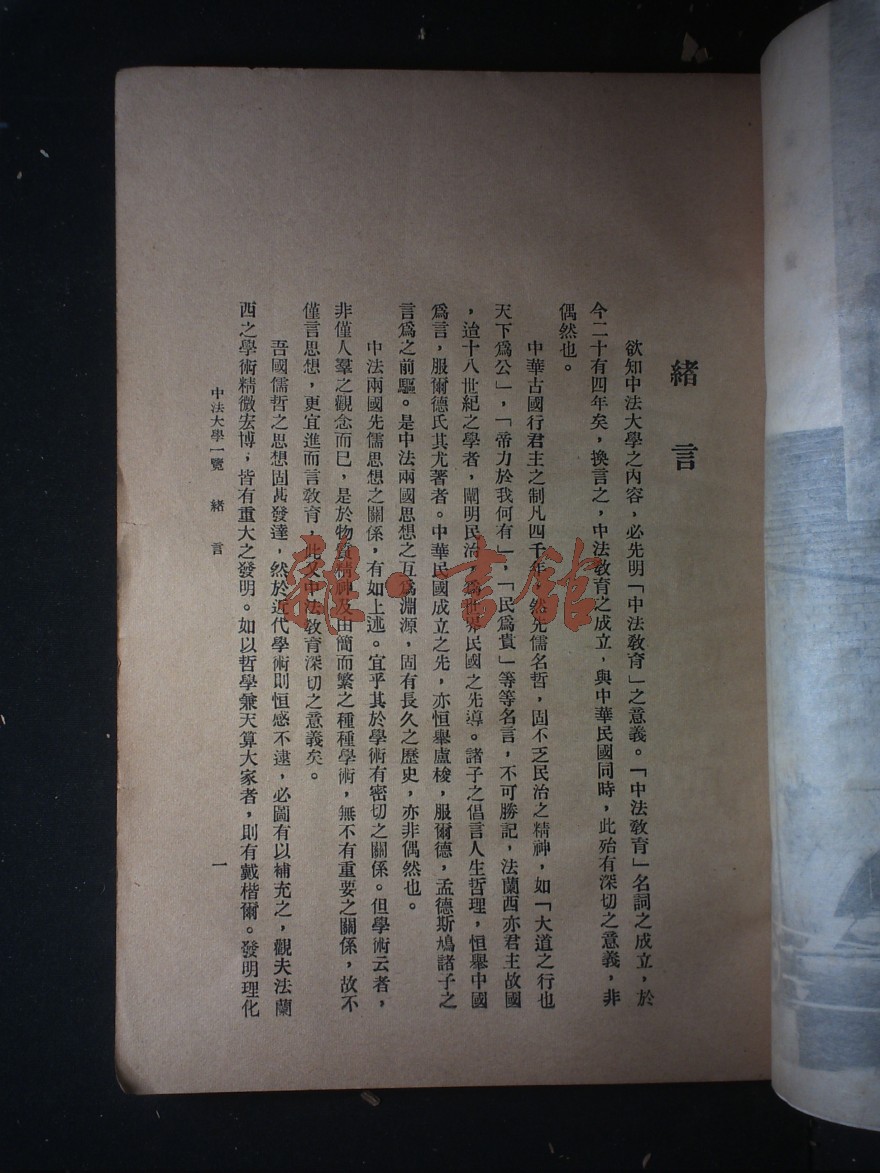 緒言
欲知中法大學之內容，必先明「中法敎育」之意義。「中法敎育」名詞之成立，於
今二十有四年矣，換言之，中法敎育之成立，與中華民國同時，此殆有深切之意義，非
偶然也。
中華古國行君主之制凡四千年，然先儒名哲，固不乏民治之精神，如「大道之行也
天下爲公」，「帝力於我何有」，「民爲貴」等等名言，不可勝記，法蘭西亦君主故國
，迨十八世紀之學者，闡明民治，爲世界民國之先導。諸子之倡言人生哲理，恒舉中國
爲言，服爾德氏其尤著者。中華民國成立之先，亦恒舉盧梭，服爾德，孟德斯鳩諸子之
言爲之前驅。是中法兩國思想之互爲淵源，固有長久之歷史，亦非偶然也。
中法兩國先儒思想之關係，有如上述。宜乎其於學術有密切之關係。但學術云者，
非僅人羣之觀念而已，是於物質精神及由簡而繁之種種學術，無不有重要之關係，故不
僅言思想，更宜進而言敎育，此又中法敎育深切之意義矣。
吾國儒哲之思想固甚發達，然於近代學術則恒感不逮，必圖有以補充之，觀夫法蘭
西之學術精微宏博，皆有重大之發明。如以哲學兼天算大家者，則有戴楷爾。發明理化
中法大學一覽 緒言
一
雜·書館